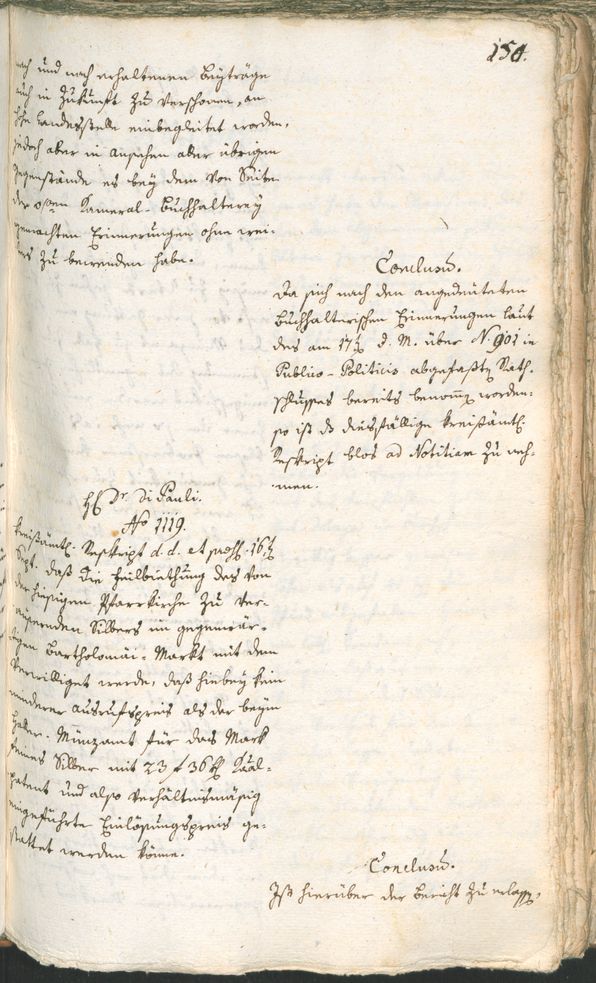 150.
nach und nach erhaltenen Beyträge
auch in Zukunft zu verschonen, an
hohe Landesstelle einbegleitet worden,
jedoch aber in Ansehen aber übrigen
Gegenstände es bey dem von Seite
der Kameral-Buchhalterey
gemachten Erinnerungen ohne wei-
ters zu bewenden habe.
Conclusum.
Da sich nach den angedeuteten
buchhalterischen Erinnerungen laut
des am 17t d. M. über N. 901 in
Publico-Politicis abgefaßten Rath-
schlusses bereits benommen worden:
so ist das diesfällige kreisämtl.
Reskript blos ad Notitiam zu neh-
men.
H. Dr. Di Pauli.
No 1119.
Kreisämtl. Reskript d. d. et praes. 16t
Sept. daß die Feilbiethung des von
der hiesigen Pfarrkirche zu ver-
äussernden Silbers im gegenwär-
tigen Bartholomäi-Markt mit dem
verwilliget werde, daß hiebey kein
minderer Ausrufspreis als der beym
Haller-Münzamt für das Mark
feines Silber mit 23 f 36 kr
patent und also verhältnismäsig
eingeführte Einlösungspreis ge-
stattet werden könne.
Conclusum.
Ist hierüber der Bericht zu erlassen.